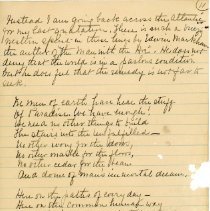 11
Instead I am going back across the Atlantic
for my last quotation. There is such a one,
written for me in these lines by Edwin Markham
the author of The Man with the Hoe. He does not
deny that the world is in a parlous condition
but he does feel that the remedy is not far to
seek.
We men of earth have here the stuff
Of Paradise. We have enough!
We need no other things to build
The stairs into the unfulfilled—
No other ivory for the doors,
No other marble for the floors,
No other cedar for the beam
And dome of man's immortal dream.
Here on the paths of every day—
Here on the common human way